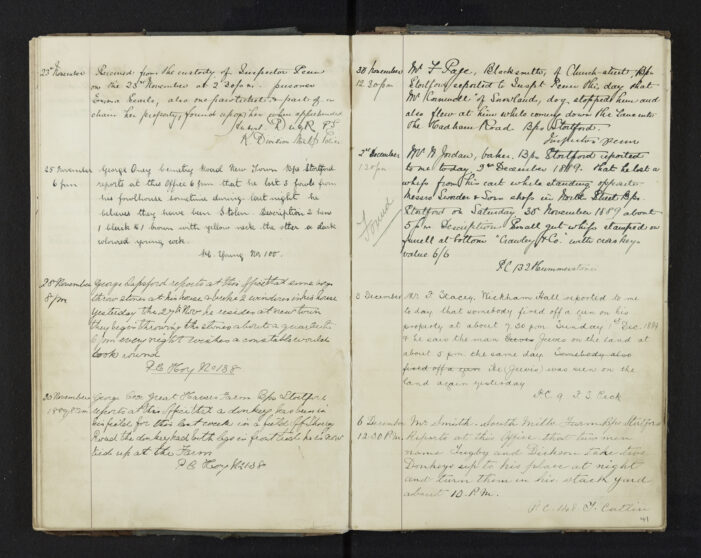 25 November Received from the custody of Inspector Penn
on the 25 November at 2.30 pm. prisoner
Emma Searle, also one pair of & part of a
chain her property, found upon her when apprehended
P.S.
K Division Met Police
25 November George Gray Cemetery Road New Town Bps Stortford
6 pm reports at this Office 6 pm that he lost 3 fowls from
his fowlhouse sometime during last night he
believes they have been Stolen Description 2 hens
1 black & 1 brown with yellow neck the other a dark
coloured young cock.
Young No 100.
28 November George Sapsford reports at this office that some boys
8 pm throw stones at his house & broke 2 windows in his house
yesterday the 27th Nov he resides at new town
they begin throwing the stones about a quarter to
6 pm every night wishes a constable would
look round
P.C. Hoy No 138
30 November George Cox Great Farm Bps Stortford
1889 8 am reports at this office that a donkey has been in
his field for this last week in a field off
Road the donkey had both legs in he is now
tied up at the Farm
P.C. Hoy No 138
30 November Mr F Page, Blacksmith, of Church-street, Bps
12.30 pm Stortford, reported to Inspt Penn this day that
Mr Kannell of Snowland, dog, stopped him and
also flew at him while coming down the Lane into
the Hadham Road Bps Stortford.
Inspector Penn
2nd December Mr W Jordan, baker, Bps Stortford reported
12 pm to me today 2nd December 1889. that he lost a
whip from his cart while standing opposite
Messrs & Sons shop in North Street Bps
Found
Stortford on Saturday 30 November 1889 about
5 pm Description Small gut whip stamped on
ferrell at bottom "Crawley & Co" with cross keys
value 6/6
PC 132
2 December Mr. F. Stacey. Wickham Hall reported to me
to day that somebody fired off a gun on his
property at about 7.30 pm Sunday 1st Dec. 1889
& he saw the man Jeevis on the land at
about 5 pm the same day. Somebody also
fired off a gun He (Jeevis) was seen on the
land again yesterday
P.C. 9 F S Peck
6 December Mr Smith. South Mills Farm Bps Stortford
12.30 P.m. Reports at this Office that two men
name and Dickson take two
Donkeys up to his place at night
and turn them in his stack yard
about 10 P.M.
P.C. 148 T. Catlin
41